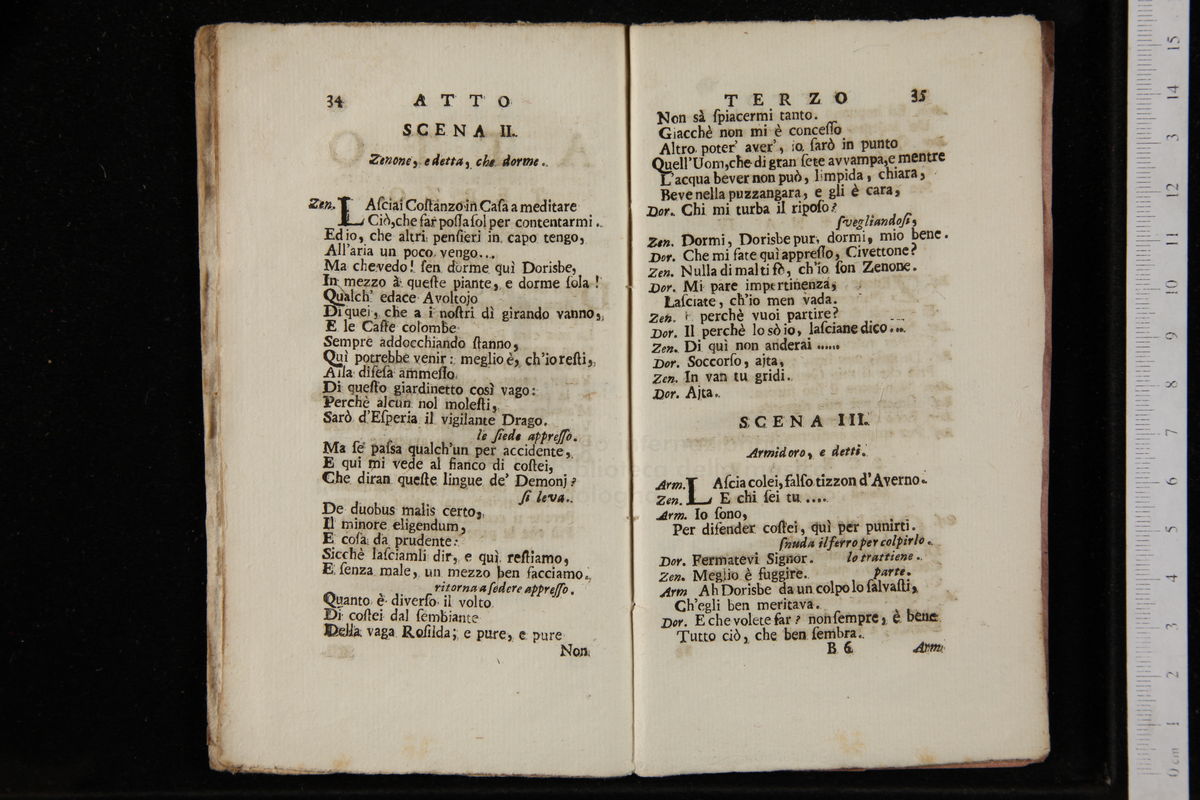 34 ATTO
SCENA II.
Zenone, e detta, che dorme.
Zen. LAſciai Coſtanzo in Caſa a meditare
Ciò, che far poſſa ſol per contentarmi.
Ed io, che altri penſieri in capo tengo,
All'aria un poco vengo...
Ma che vedo! ſen dorme quì Dorisbe,
In mezzo à queſte piante, e dorme ſola!
Qualch' edace Avoltojo
Di quei, che a i noſtri dì girando vanno,
E le Caſte colombe
Sempre addocchiando ſtanno,
Quì potrebbe venir: meglio è, ch'io reſti,
Alla difeſa ammeſſo
Di queſto giardinetto così vago:
Perchè alcun nol moleſti,
Sarò d'Eſperia il vigilante Drago.
le ſiede appreſſo.
Ma ſe paſsa qualch'un per accidente,
E qui mi vede al fianco di coſtei,
Che diran queſte lingue de' Demonj?
ſi leva.
De duobus malis certo,
Il minore eligendum,
E coſa da prudente:
Sicchè laſciamli dir, e quì reſtiamo,
E ſenza male, un mezzo ben facciamo.
ritorna a ſedere appreſſo.
Quanto è diverſo il volto
Di coſtei dal ſembiante
Della vaga Roſilda; e pure, e pure
Non
TERZO 35
Non sà ſpiacermi tanto.
Giacchè non mi è conceſſo
Altro poter' aver', io ſarò in punto
Quell'Uom, che di gran ſete avvampa, e mentre
L'acqua bever non può, limpida, chiara,
Beve nella puzzangara, e gli è cara,
Dor. Chi mi turba il ripoſo?
ſvegliandoſi,
Zen. Dormi, Dorisbe pur, dormi, mio bene.
Dor. Che mi fate quì appreſſo, Civettone?
Zen. Nulla di mal ti fò, ch'io ſon Zenone.
Dor. Mi pare impertinenza,
Laſciate, ch'io men vada.
Zen. perchè vuoi partire?
Dor. Il perchè lo sò io, laſciane dico....
Zen. Di quì non anderai ......
Dor. Soccorſo, ajta,
Zen. In van tu gridi.
Dor. Ajta.
SCENA III.
Armidoro, e detti.
Arm. LAſcia colei, falſo tizzon d'Averno.
Zen. E chi ſei tu ....
Arm. Io ſono,
Per difender coſtei, quì per punirti.
ſnuda il ferro per colpirlo.
Dor. Fermatevi Signor. lo trattiene.
Zen. Meglio è fuggire. parte.
Arm Ah Dorisbe da un colpo lo ſalvaſti,
Ch'egli ben meritava.
Dor. E che volete far? non ſempre, è bene
Tutto ciò, che ben ſembra.
B 6 Arm.